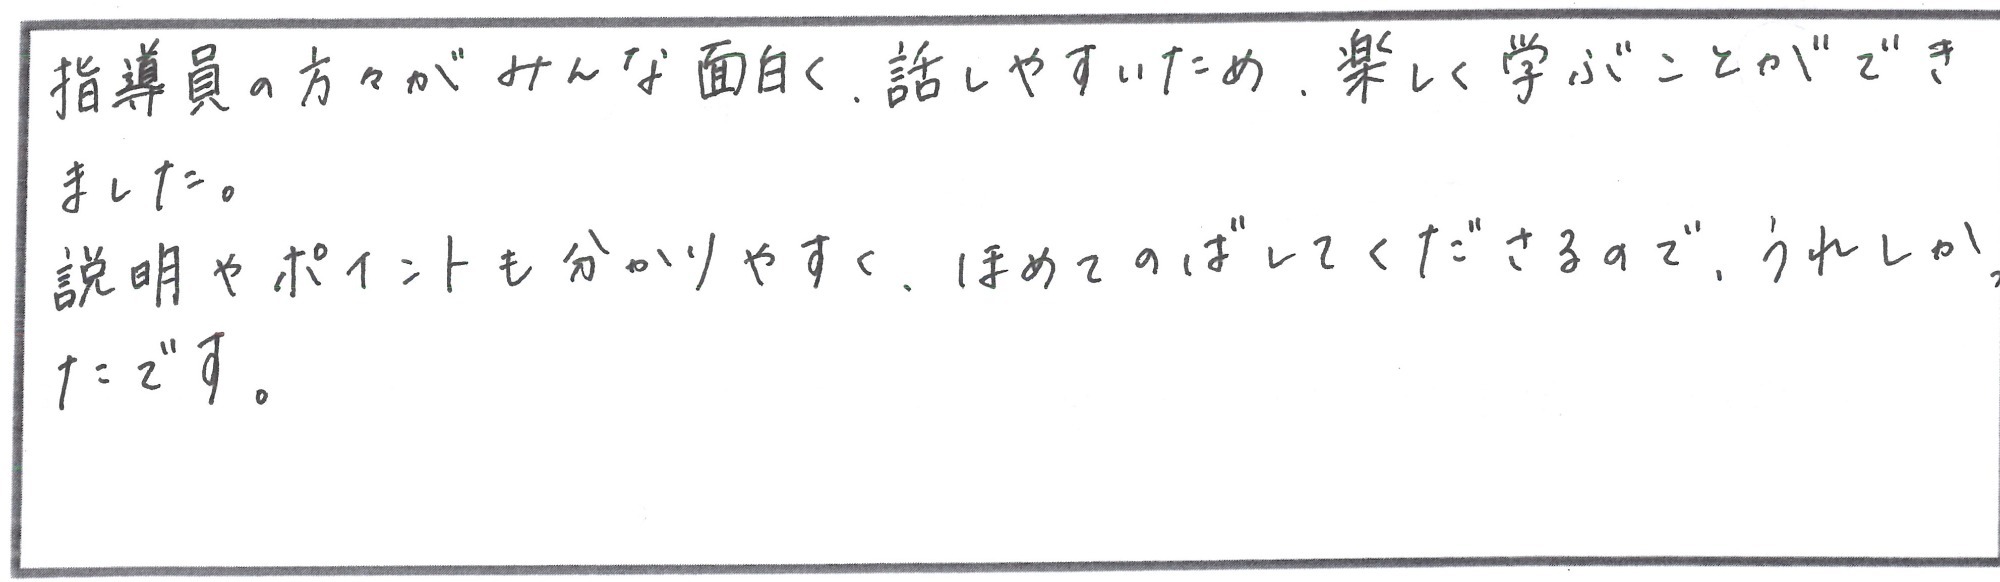 指導員の方々がみんな面白く、話しやすいため、楽しく学ぶことができ
ました。
説明やポイントも分かりやすく、ほめてのばしてくださるので、うれしかっ
たです。